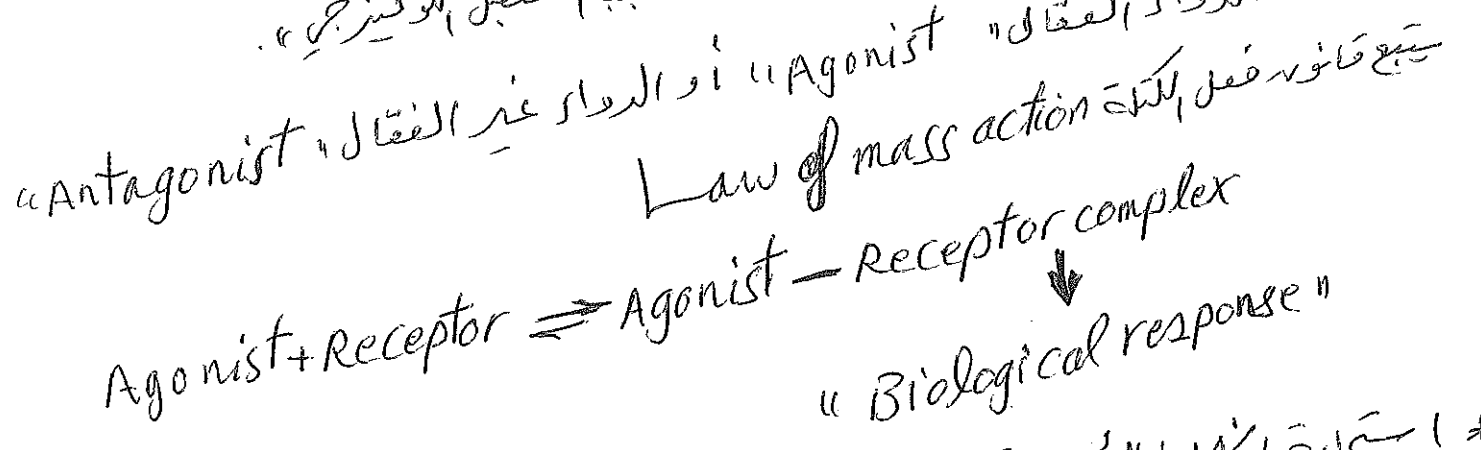 الفعّال" Agonist" أو الدواء غير الفعّال "Antagonist"
يتبع قانون فعل الكتلة Law of mass action
Agonist + Receptor ⇌ Agonist – Receptor complex
↓
"Biological response"